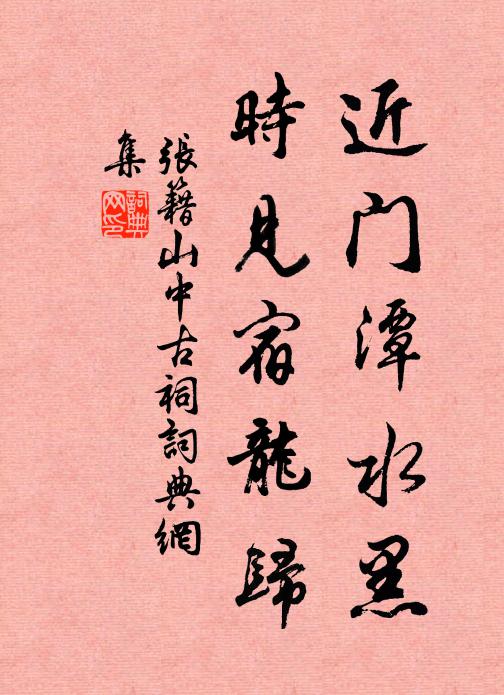 近门潭水黑
時見宿龍歸
張籍山中古祠詞典網
集
詞典网印